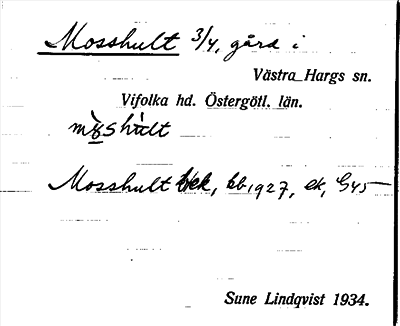 Mosshult 3/4, gård i
Västra Hargs sn.
Vifolka hd. Östergötl. län.
Mosshult bek, kb 1927, ek, G45
Sune Lindqvist 1934.